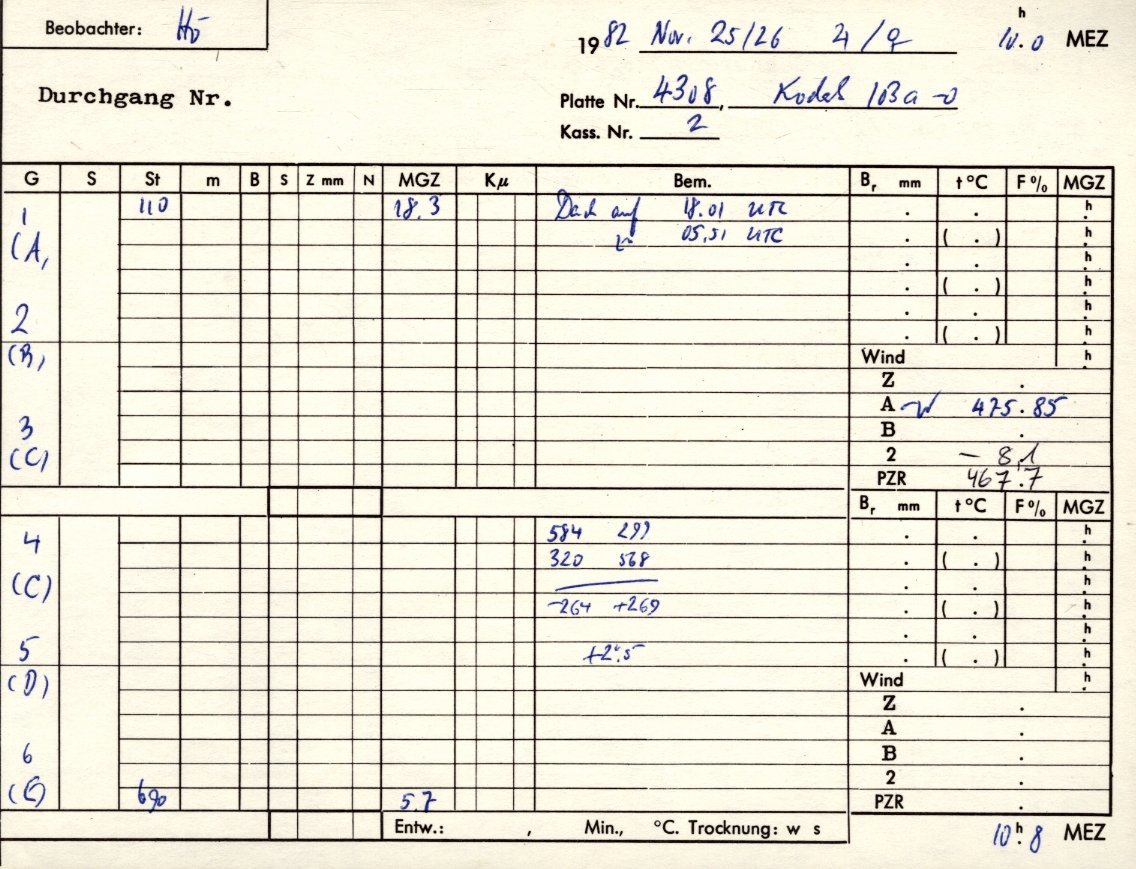 Beobachter: Hö
1982 Nov. 25/26 4/9 10.0 h MEZ
Durchgang Nr.
Platte Nr. 4308, Kodak 103a-0
Kass. Nr. 2
G S St m B S Z mm N MGZ Kμ Bem. Br mm t°C F% MGZ
1 110 18.3 Dach auf 18.01 UTC . . h
(A) 05.51 UTC . ( . ) h
. . h
. ( . ) h
2 . . h
. ( . ) h
(B) Wind h
Z .
A 475.85
3 B .
(C) 2 - 8,1
PZR 467.7
Br mm t°C F% MGZ
4 584 299 . . h
320 568 . ( . ) h
(C) . . h
-264 +269 . ( . ) h
. . h
5 +2.5 . ( . ) h
(D) Wind h
Z .
A .
6 B .
2 .
(E) 690 5.7 PZR .
Entw.: , Min., °C. Trocknung: w s
10 h. 8 MEZ